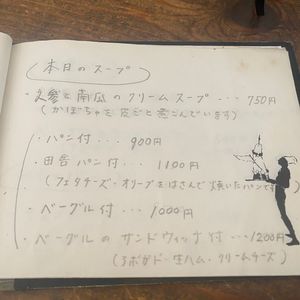 本日のスープ
・人参と南瓜のクリームスープ・・・750円
(かぼちゃを皮ごと煮こんでいます)
・パン付・・・900円
・田舎パン付・・・1100円
(フェタチーズ・オリーブをはさんで焼いたパンです)
・ベーグル付・・・1000円
・ベーグルのサンドウィッチ付・・・1200円
(アボガド・生ハム・クリームチーズ)